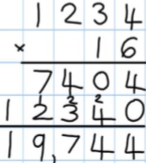 1 2 3 4
× 1 6
7 4 0 4
1 2 3 4 0
1 9,7 4 4